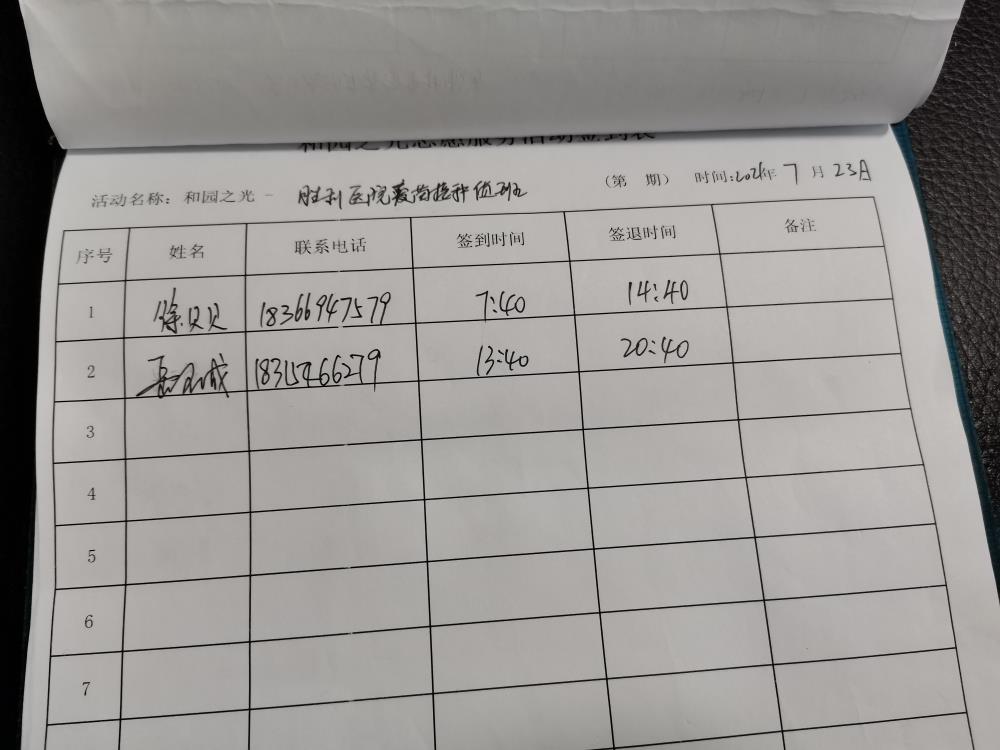 和园之光志愿服务活动签到表
活动名称：和园之光 - 胜利医院疫苗接种值班 （第 期） 时间:2021年 7 月 23日
序号 姓名 联系电话 签到时间 签退时间 备注
1 徐贝贝 18366947579 7:40 14:40
2 18315466279 13:40 20:40
3
4
5
6
7